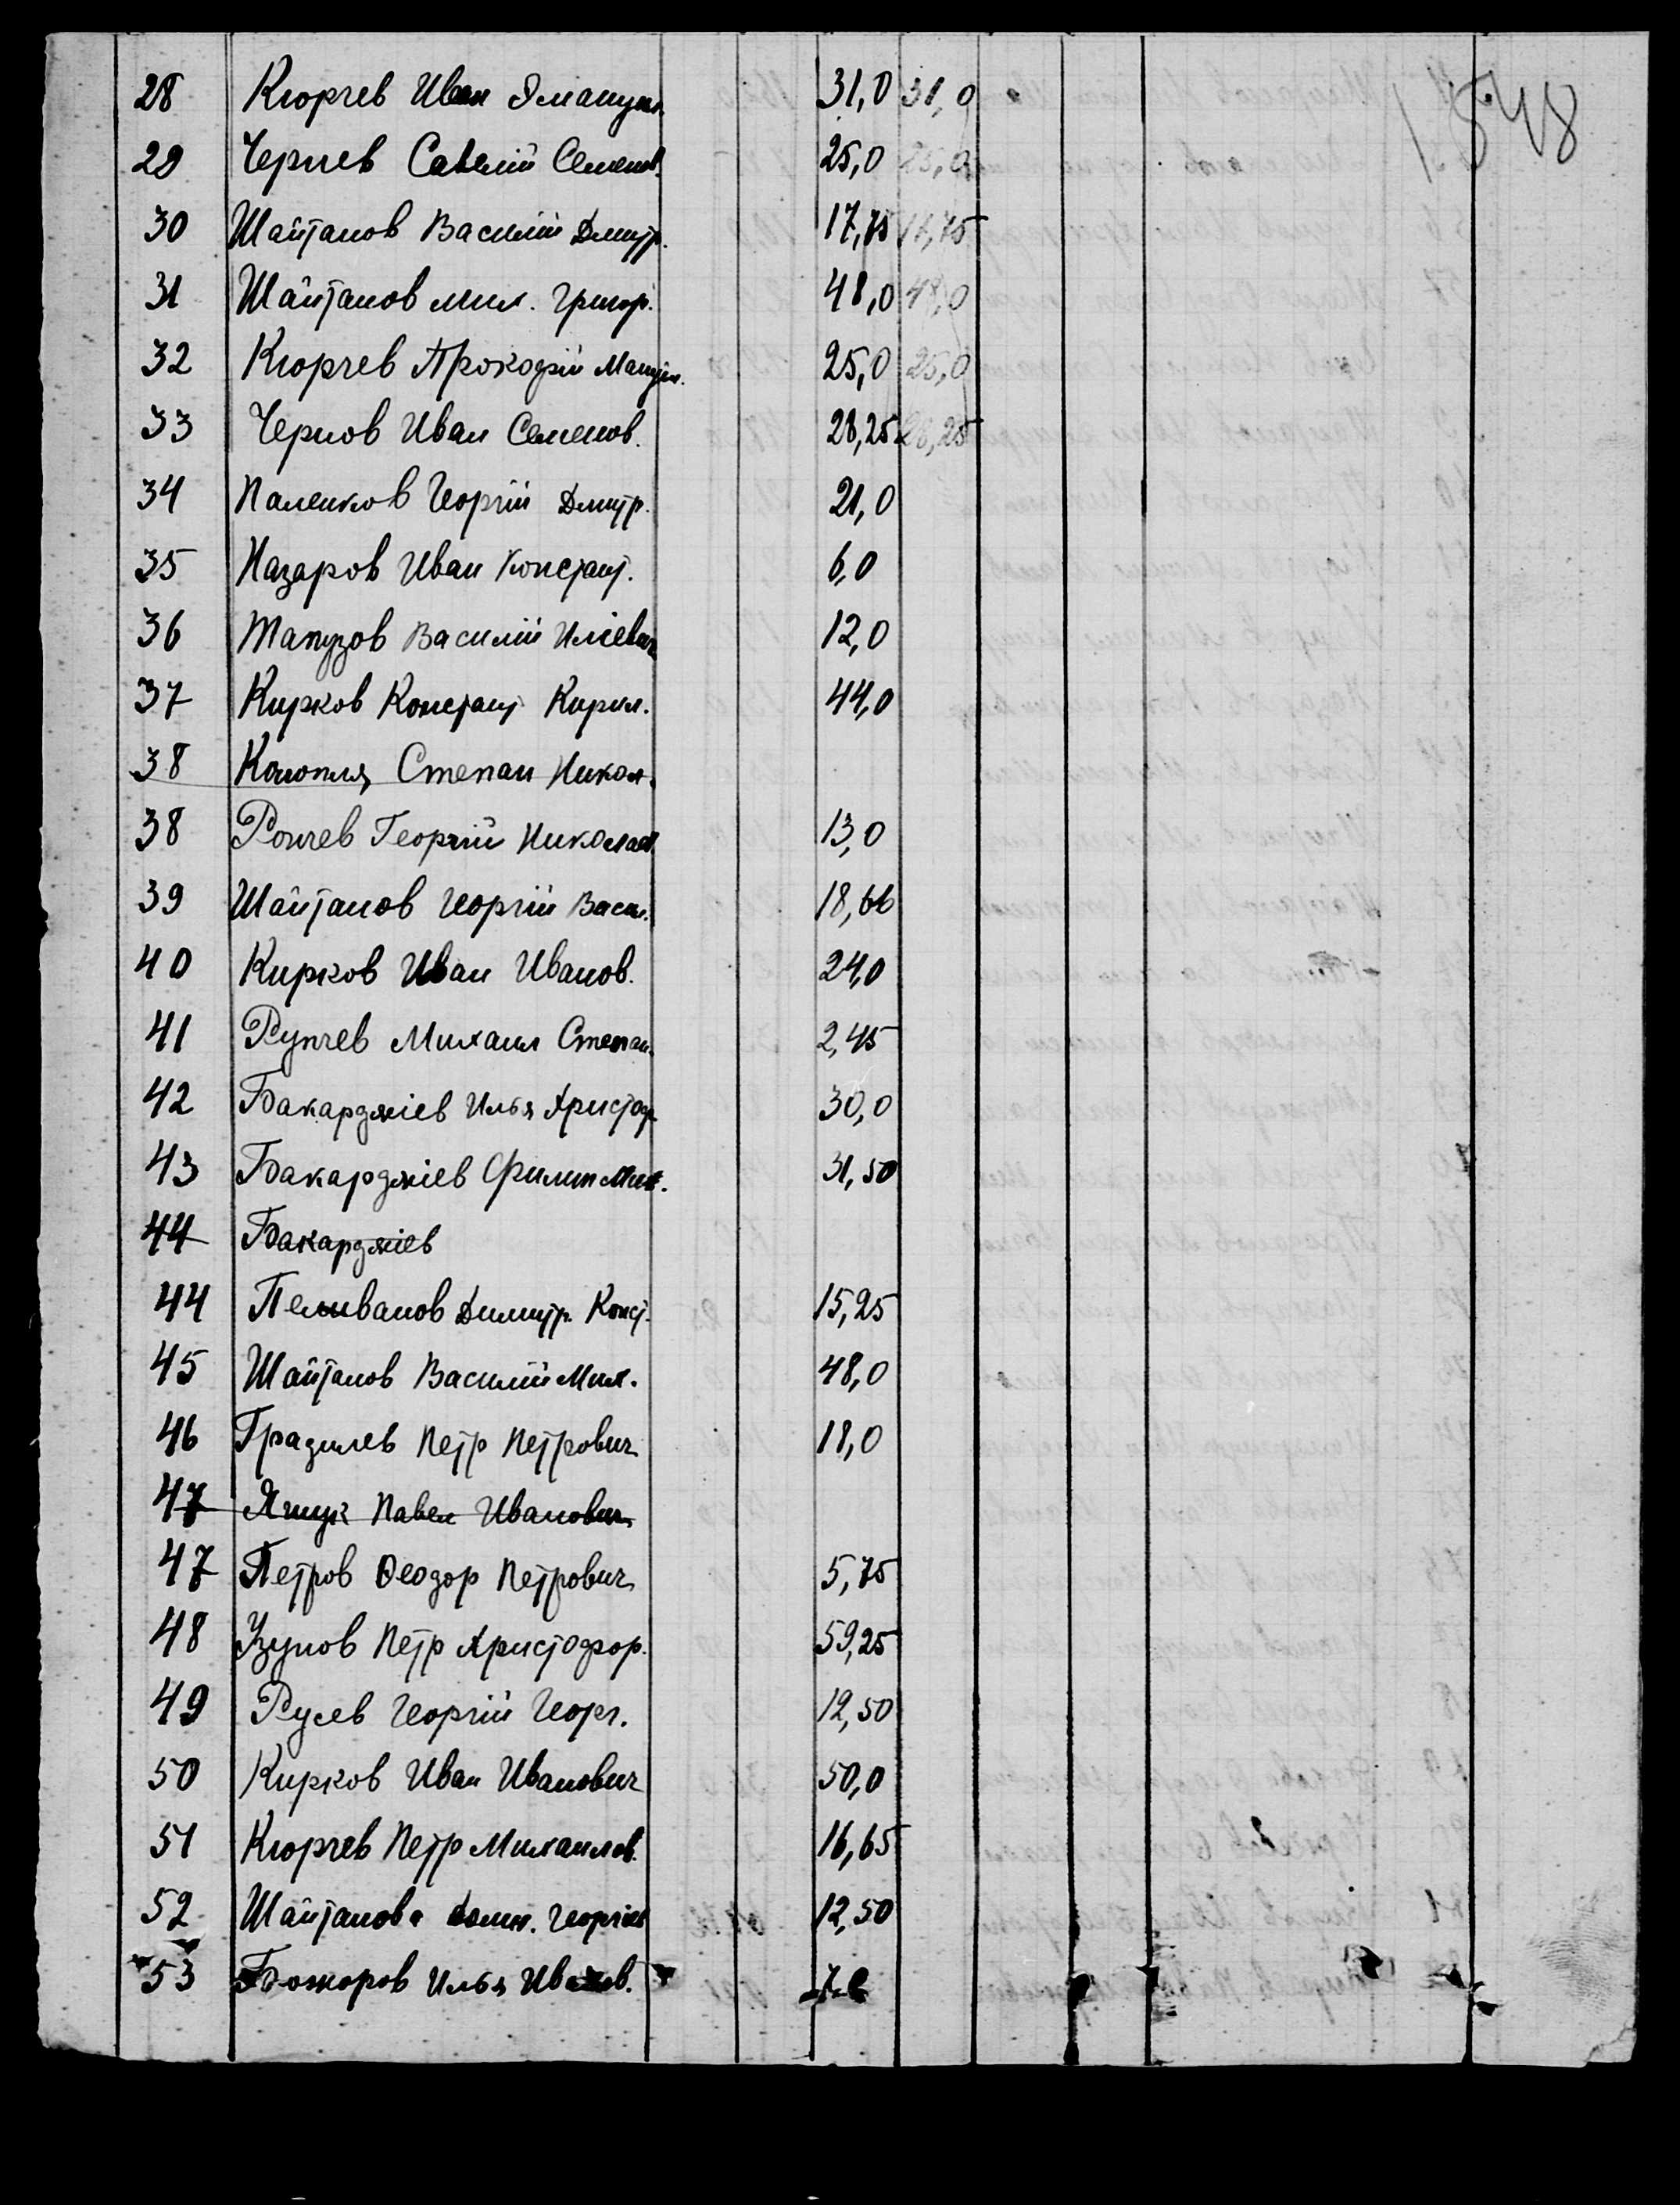 1548
28 Кюрчев Иван Эмануил. 31,0 31,0
29 Чернев Савелій Семенов. 25,0 25,0
30 Шайтанов Василій Дмитр. 17,75 17,75
31 Шайтанов Мих. Григор. 48,0 48,0
32 Кюрчев Прокофій Мануил. 25,0 25,0
33 Чернов Иван Семенов. 28,25 28,25
34 Паленков Георгій Дмитр. 21,0
35 Назаров Иван Констант. 6,0
36 Тапузов Василій Иліевич 12,0
37 Кирков Констант Кирил. 44,0
38 Конопля Степан Никол.
38 Рончев Георгій Николаев. 13,0
39 Шайтанов Георгій Васил. 18,66
40 Кирков Иван Иванов. 24,0
41 Рупчев Михаил Степан. 2,45
42 Бакарджіев Илья Христоф. 30,0
43 Бакарджіев Филип Мих. 31,50
44 Бакарджіев
44 Пеливанов Димитр. Конст. 15,25
45 Шайтанов Василій Мих. 48,0
46 Градилев Петр Петрович 18,0
47 Ящук Павел Иванович
47 Петров Феодор Петрович 5,75
48 Узунов Петр Христофор. 59,25
49 Русев Георгій Георг. 12,50
50 Кирков Иван Иванович 50,0
51 Кюрчев Петр Михаилов. 16,65
52 Шайтанова Домн. Георгіев 12,50
53 Божоров Илья Иванов.